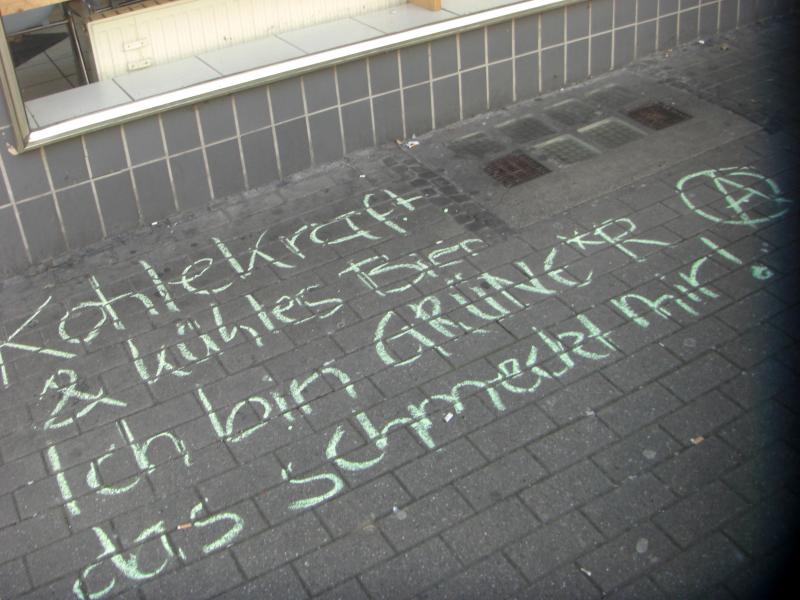 Kohlekraft
& kühles Bier
Ich bin GRÜNE*R Ⓐ
das schmeckt mir!